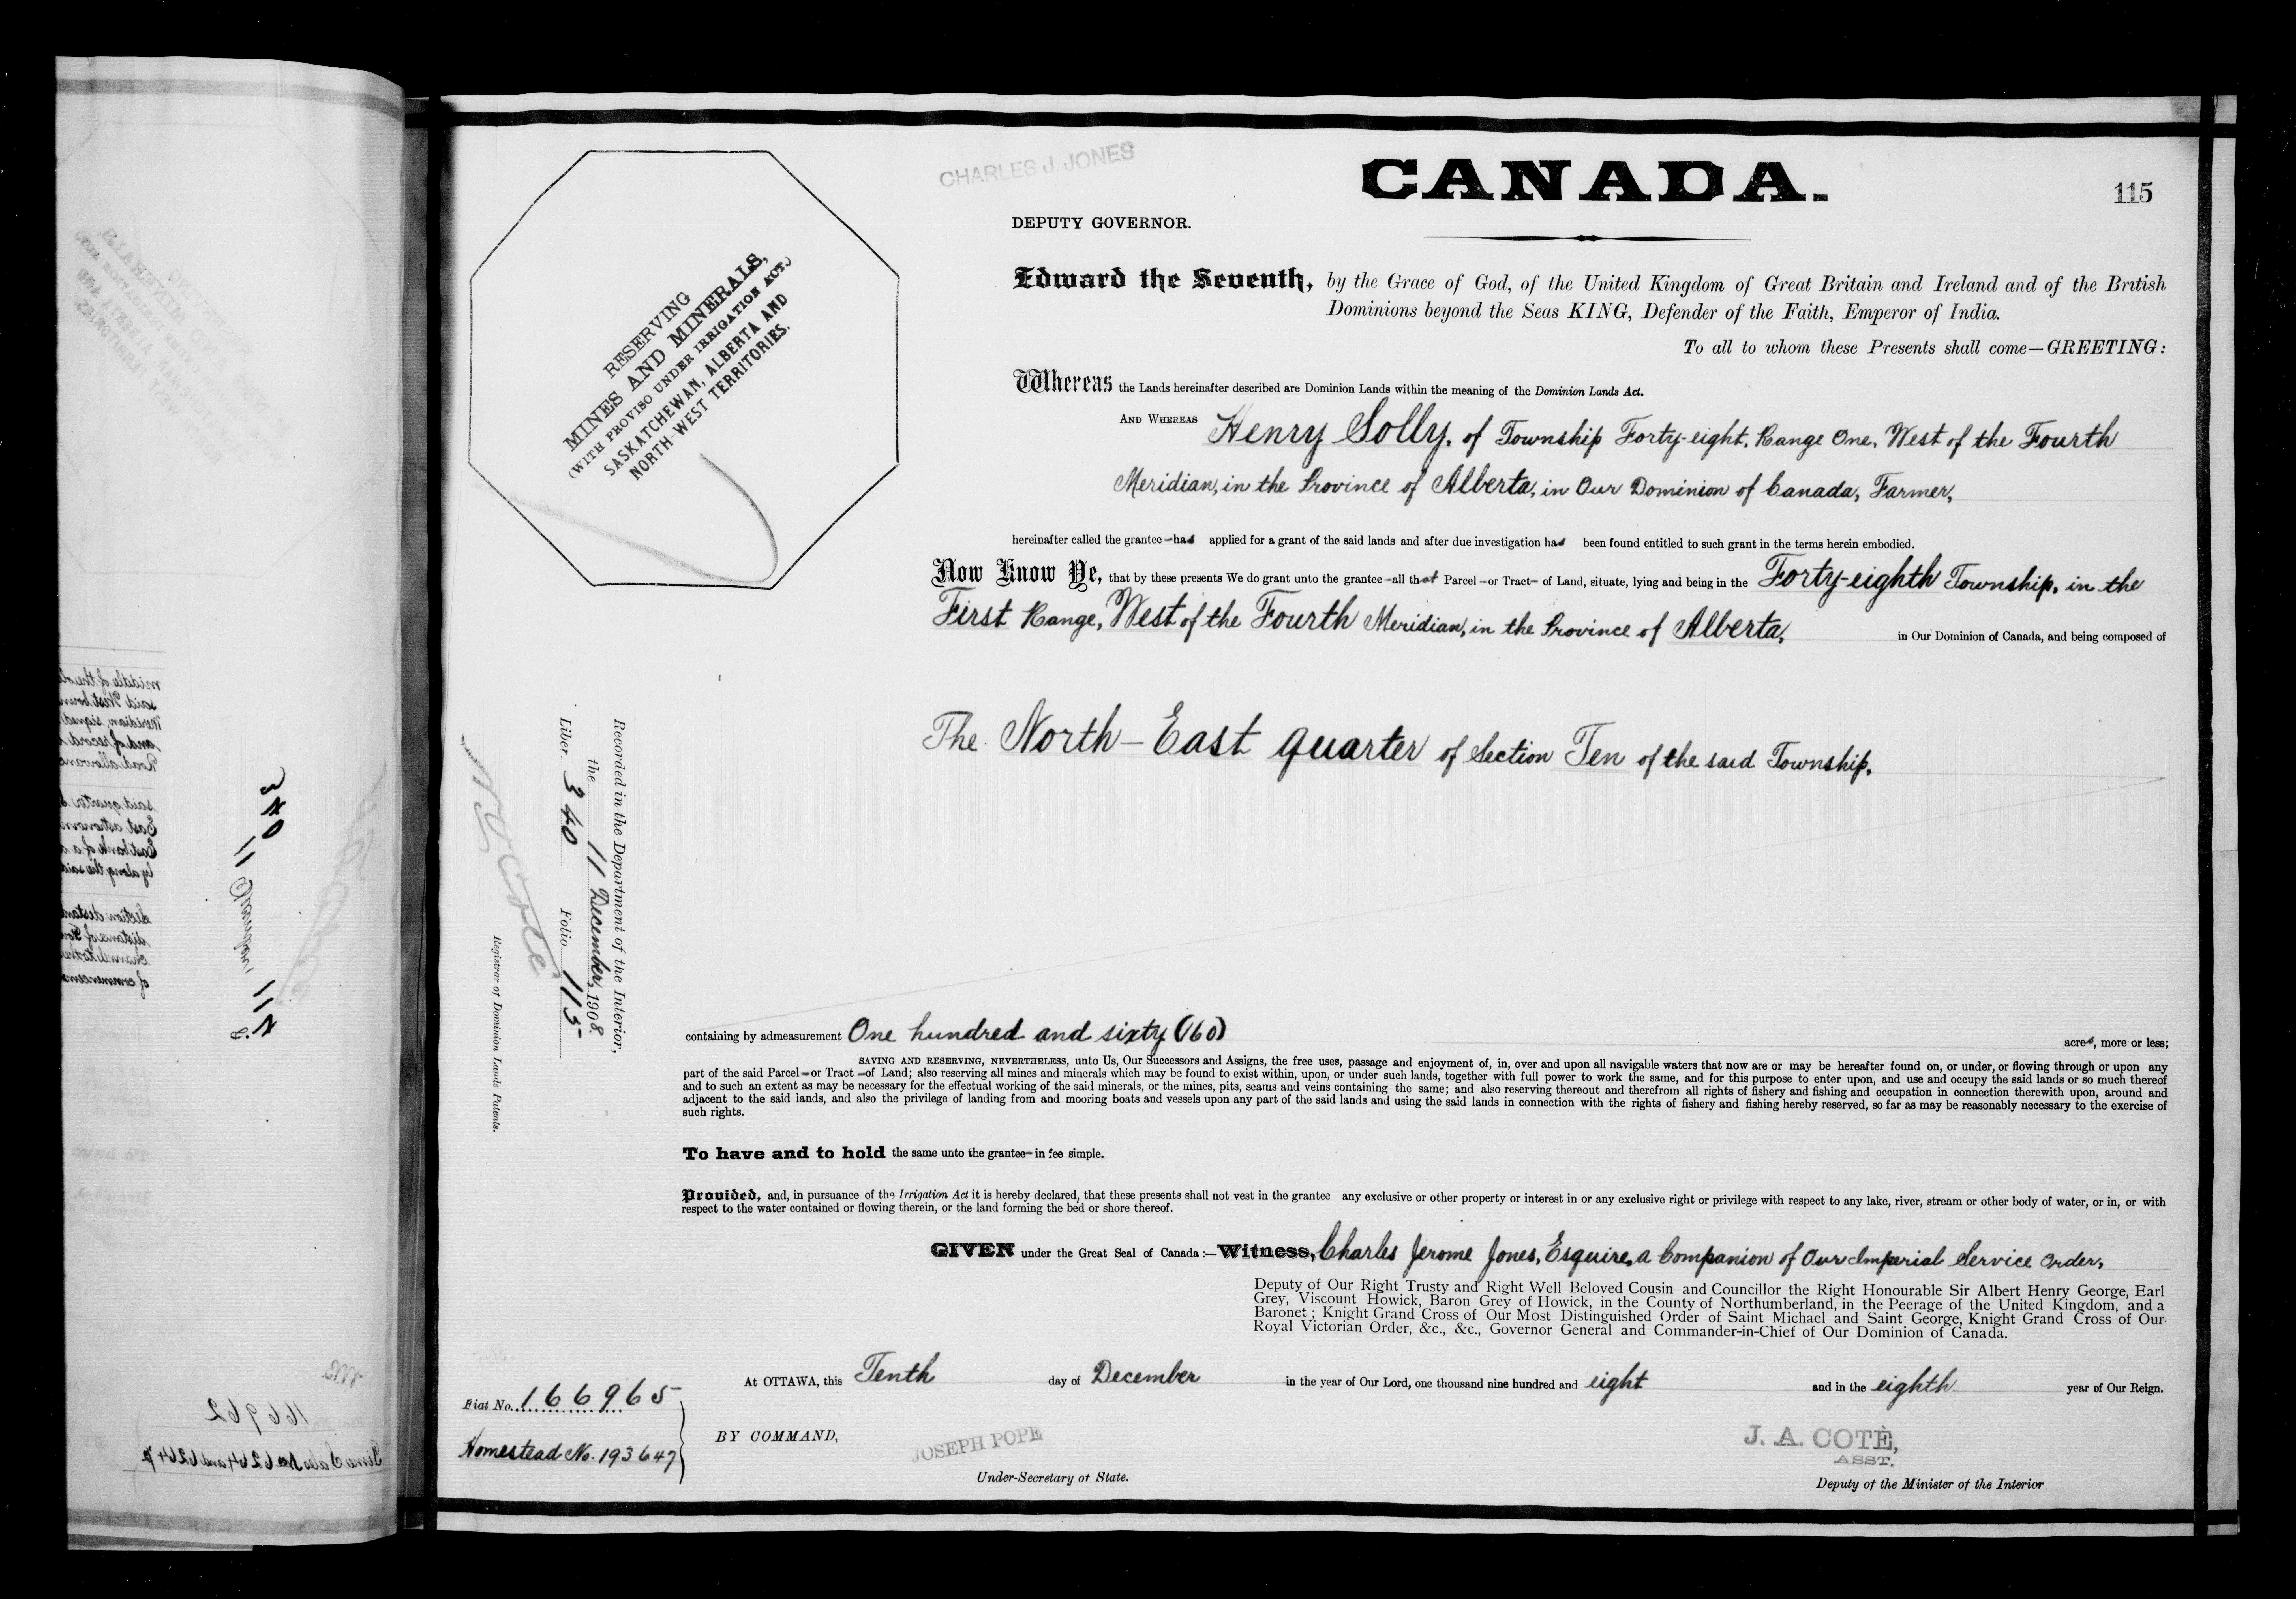 CHARLES J. JONES
CANADA.
115
DEPUTY GOVERNOR.
RESERVING
MINES AND MINERALS,
(WITH PROVISO UNDER IRRIGATION ACT.)
SASKATCHEWAN, ALBERTA AND
NORTH WEST TERRITORIES.
Edward the Seventh, by the Grace of God, of the United Kingdom of Great Britain and Ireland and of the British
Dominions beyond the Seas KING, Defender of the Faith, Emperor of India.
To all to whom these Presents shall come—GREETING:
Whereas the Lands hereinafter described are Dominion Lands within the meaning of the Dominion Lands Act.
AND WHEREAS Henry Solly, of Township Forty-eight, Range One, West of the Fourth
Meridian, in the Province of Alberta, in Our Dominion of Canada, Farmer,
hereinafter called the grantee—had applied for a grant of the said lands and after due investigation had been found entitled to such grant in the terms herein embodied.
Now Know Ye, that by these presents We do grant unto the grantee—all that Parcel—or Tract—of Land, situate, lying and being in the Forty-eighth Township, in the
First Range, West of the Fourth Meridian, in the Province of Alberta, in Our Dominion of Canada, and being composed of
The North-East quarter of Section Ten of the said Township.
Recorded in the Department of the Interior,
the 11 December, 1908.
Liber 340 Folio 115
N O Coté
Registrar of Dominion Lands Patents.
containing by admeasurement One hundred and sixty (160) acres, more or less;
SAVING AND RESERVING, NEVERTHELESS, unto Us, Our Successors and Assigns, the free uses, passage and enjoyment of, in, over and upon all navigable waters that now are or may be hereafter found on, or under, or flowing through or upon any
part of the said Parcel—or Tract—of Land; also reserving all mines and minerals which may be found to exist within, upon, or under such lands, together with full power to work the same, and for this purpose to enter upon, and use and occupy the said lands or so much thereof
and to such an extent as may be necessary for the effectual working of the said minerals, or the mines, pits, seams and veins containing the same; and also reserving thereout and therefrom all rights of fishery and fishing and occupation in connection therewith upon, around and
adjacent to the said lands, and also the privilege of landing from and mooring boats and vessels upon any part of the said lands and using the said lands in connection with the rights of fishery and fishing hereby reserved, so far as may be reasonably necessary to the exercise of
such rights.
To have and to hold the same unto the grantee—in fee simple.
Provided, and, in pursuance of the Irrigation Act it is hereby declared, that these presents shall not vest in the grantee any exclusive or other property or interest in or any exclusive right or privilege with respect to any lake, river, stream or other body of water, or in, or with
respect to the water contained or flowing therein, or the land forming the bed or shore thereof.
GIVEN under the Great Seal of Canada:—Witness, Charles Jerome Jones, Esquire, a Companion of Our Imperial Service Order,
Deputy of Our Right Trusty and Right Well Beloved Cousin and Councillor the Right Honourable Sir Albert Henry George, Earl
Grey, Viscount Howick, Baron Grey of Howick, in the County of Northumberland, in the Peerage of the United Kingdom, and a
Baronet; Knight Grand Cross of Our Most Distinguished Order of Saint Michael and Saint George, Knight Grand Cross of Our
Royal Victorian Order, &c., &c., Governor General and Commander-in-Chief of Our Dominion of Canada.
At OTTAWA, this Tenth day of December in the year of Our Lord, one thousand nine hundred and eight and in the eighth year of Our Reign.
Fiat No. 166965
Homestead No. 193647
BY COMMAND,
JOSEPH POPE
Under-Secretary of State.
J. A. COTÈ,
ASST.
Deputy of the Minister of the Interior.